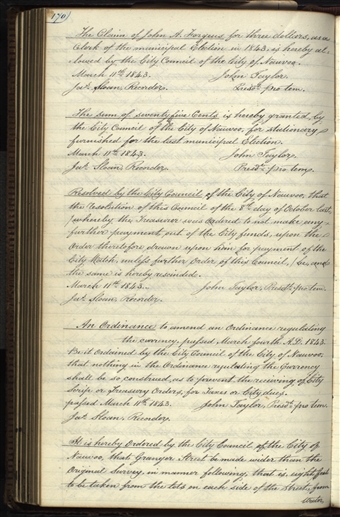 170
The Claim of John A. Forgeus for three dollars, as a
Clerk of the municipal Election in 1843, is hereby al-
lowed by the City Council of the City of Nauvoo.
March 11th 1843. John Taylor,
Jas. Sloan, Recorder. Presdt. pro tem.
The sum of seventy five Cents is hereby granted by
the City Council of the City of Nauvoo, for stationery
furnished for the last municipal Election.
March 11th 1843. John Taylor,
Jas. Sloan Recorder Presdt. pro tem.
Resolved by the City Council of the City of Nauvoo, that
the resolution of this Council of the 8th day of October last,
whereby the Treasurer was Ordered to not make any
further payment out of the City funds, upon the
Order therefore drawn upon him for payment of the
City Watch, unless further Order of this Council, be and
the same is hereby rescinded.
March 11th 1843. John Taylor, Presdt. pro tem.
Jas. Sloan Recorder.
An Ordinance to amend an Ordinance regulating
the currency, passed March fourth A.D. 1843.
Be it Ordained by the City Council of the City of Nauvoo,
that nothing in the Ordinance regulating the Currency
shall be so construed, as to prevent the receiving of City
Scrip or Treasury Orders, for Taxes or City dues.
passed March 11th 1843. John Taylor, Presdt. pro tem.
Jas. Sloan, Recorder.
It is hereby Ordered by the City Council of the City of
Nauvoo, that Granger Street be made wider than the
Original Survey, in manner following, that is, eight feet
to be taken from the lots on each side of the Street, from